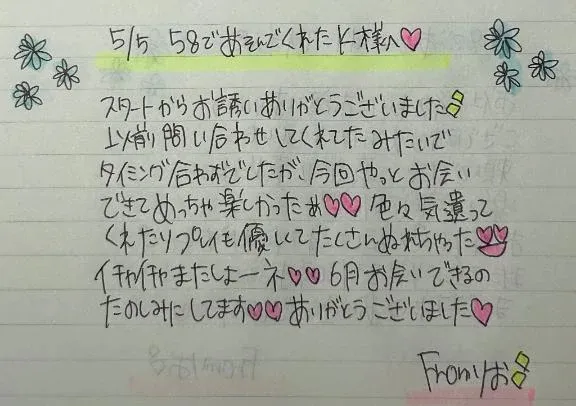 5/5 58であそんでくれたK様へ♡
スタートからお誘いありがとうございました
以前問い合わせしてくれてたみたいで
タイミング合わずでしたが、今回やっとお会い
できてめっちゃ楽しかったぁ♡♡ 色々気遣って
くれたりプレイも優しくてたくさんぬれちゃった
イチャイチャまたしよーネ♡♡ 6月お会いできるの
たのしみにしてます♡♡ ありがとうございました♡
Fromりお